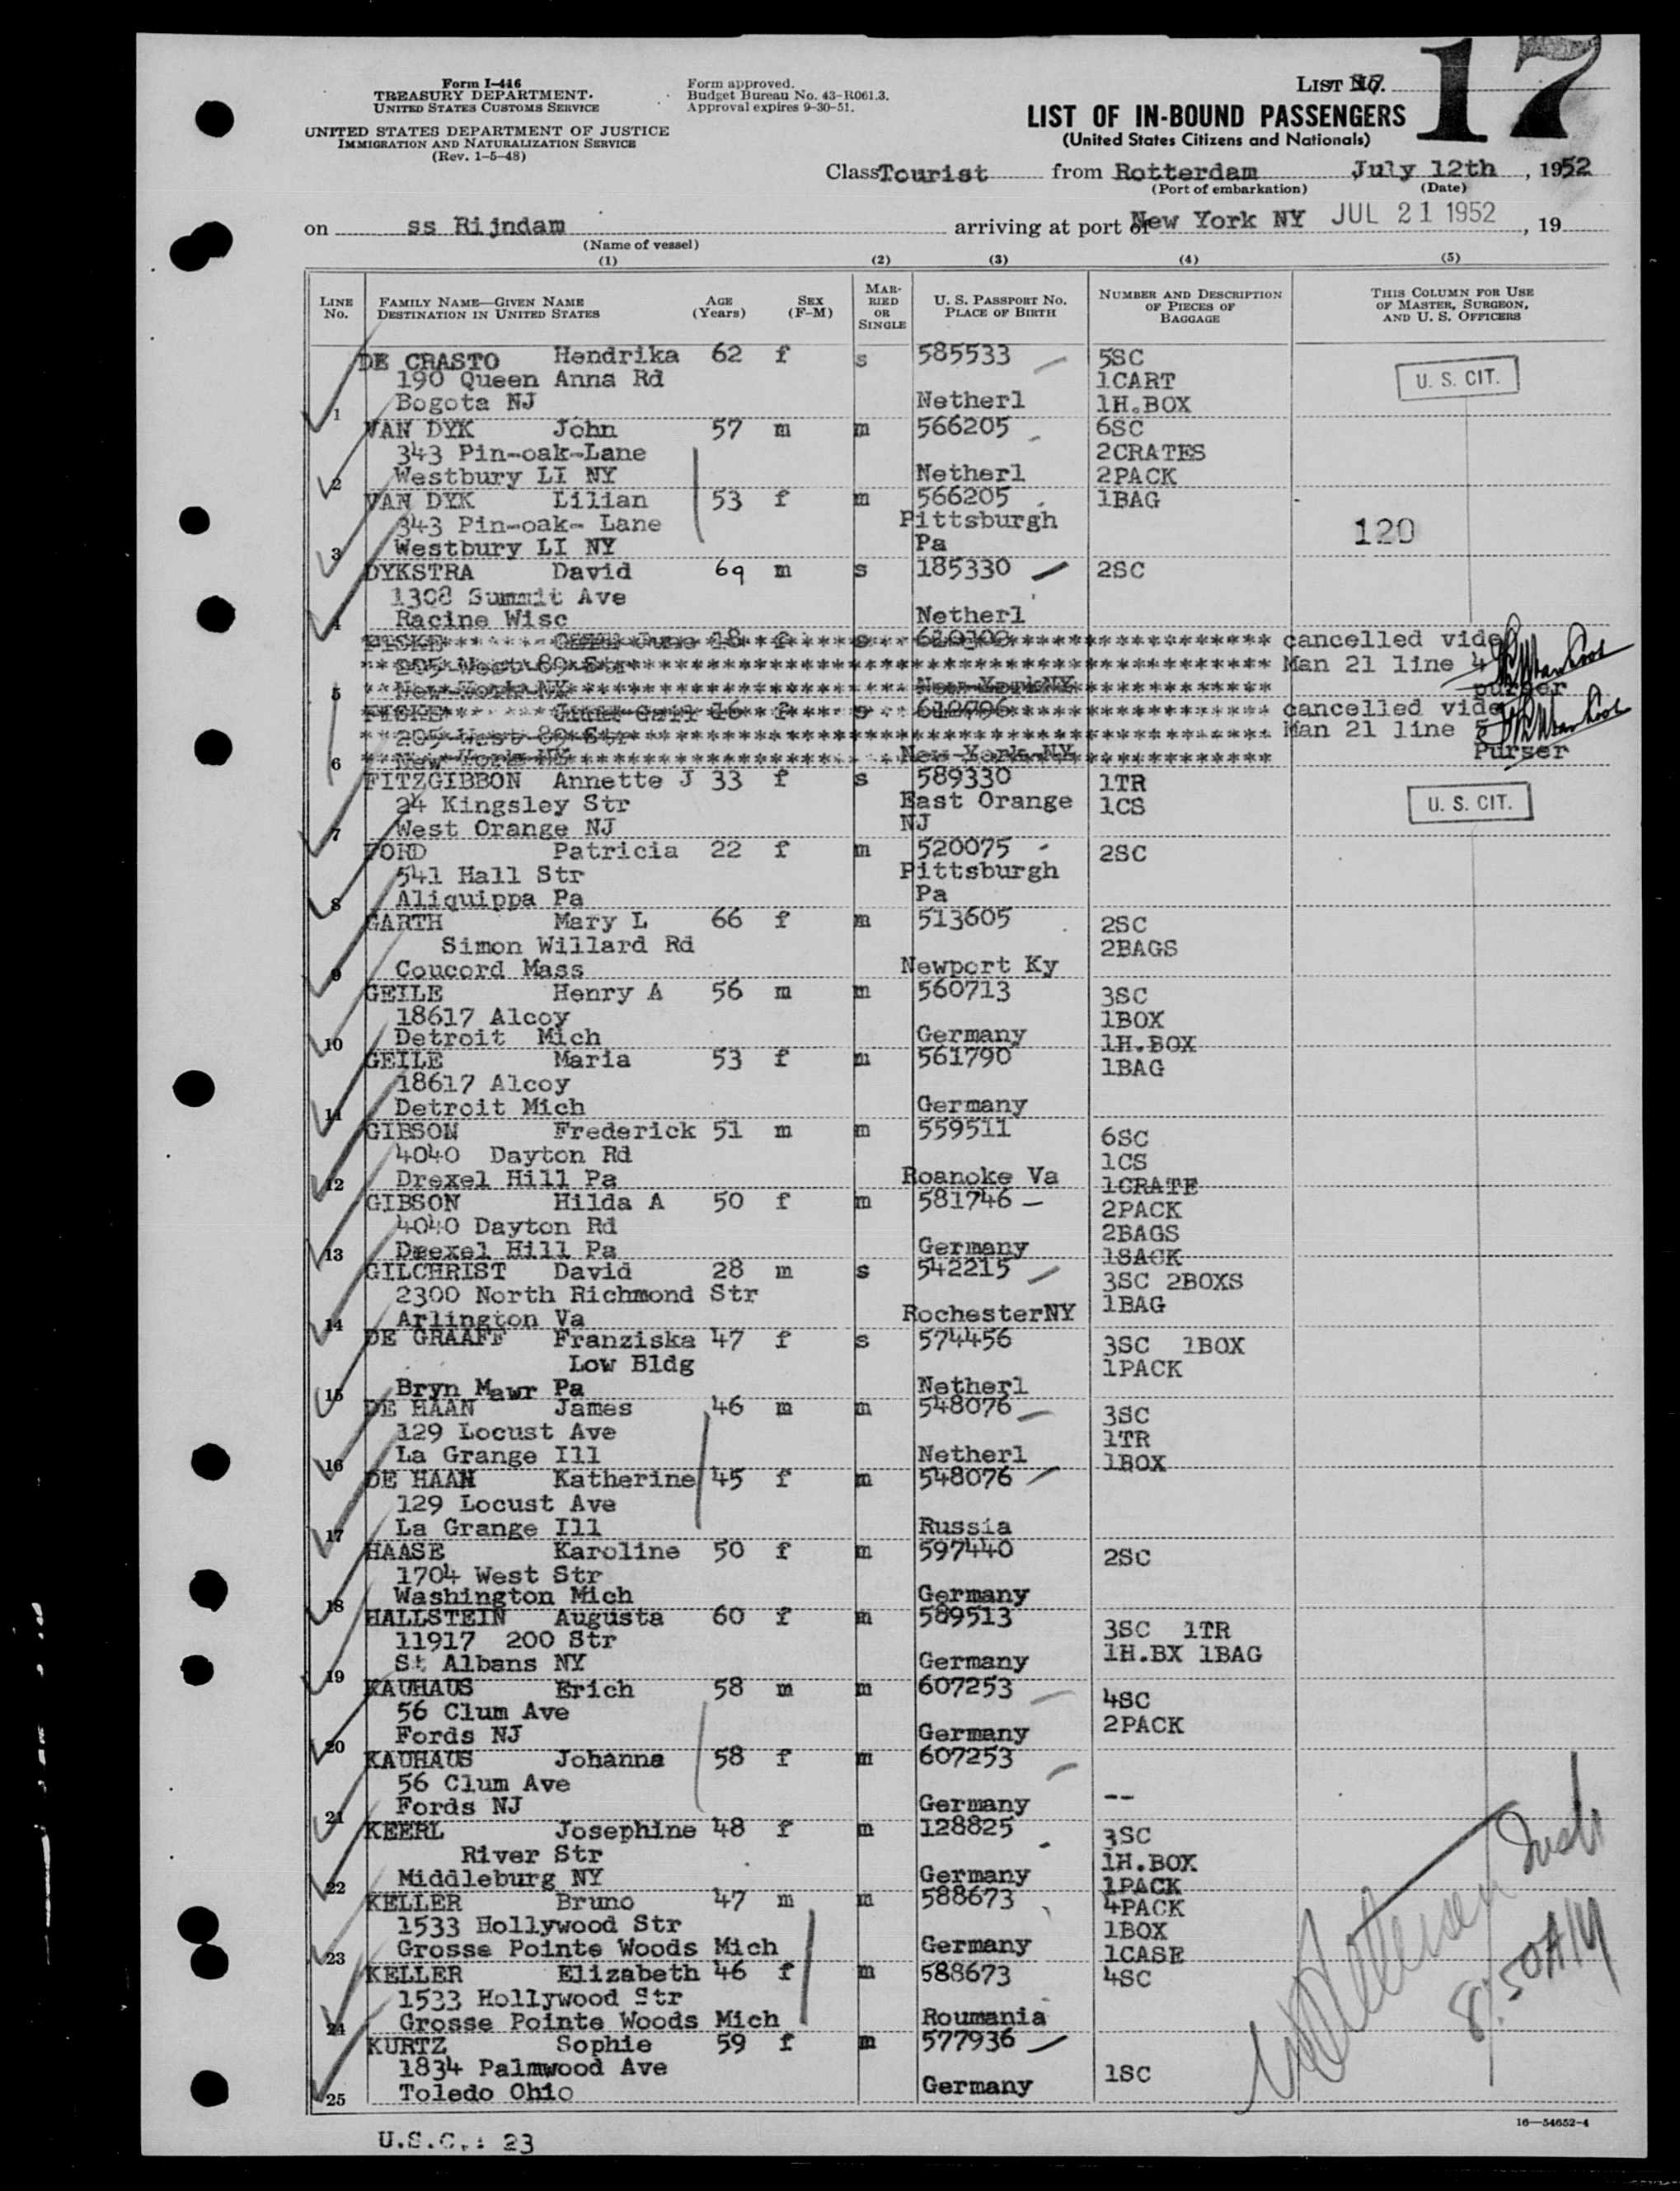 Form I-416
TREASURY DEPARTMENT.
UNITED STATES CUSTOMS SERVICE
UNITED STATES DEPARTMENT OF JUSTICE
IMMIGRATION AND NATURALIZATION SERVICE
(Rev. 1-5-48)
Form approved.
Budget Bureau No. 43-R061.3.
Approval expires 9-30-51.
LIST No. 17
LIST OF IN-BOUND PASSENGERS
(United States Citizens and Nationals)
Class Tourist from Rotterdam July 12th, 1952
(Port of embarkation) (Date)
on ss Rijndam arriving at port of New York NY JUL 21 1952, 19
(Name of vessel)
(1) (2) (3) (4) (5)
LINE No. FAMILY NAME—GIVEN NAME DESTINATION IN UNITED STATES AGE (Years) SEX (F-M) MARRIED OR SINGLE U. S. PASSPORT NO. PLACE OF BIRTH NUMBER AND DESCRIPTION OF PIECES OF BAGGAGE THIS COLUMN FOR USE OF MASTER, SURGEON, AND U. S. OFFICERS
DE CRASTO Hendrika 62 f s 585533 5SC
190 Queen Anna Rd 1CART U. S. CIT.
1 Bogota NJ Netherl 1H.BOX
VAN DYK John 57 m m 566205 6SC
343 Pin-oak-Lane 2CRATES
2 Westbury LI NY Netherl 2PACK
VAN DYK Lilian 53 f m 566205 1BAG
343 Pin-oak- Lane Pittsburgh 120
3 Westbury LI NY Pa
DYKSTRA David 69 m s 185330 2SC
1308 Summit Ave
4 Racine Wisc Netherl
FISKE 18 f s cancelled vide
205 West 89 Str Man 21 line 4
5 New York NY New York NY purser
FISKE 16 f s cancelled vide
205 West 89 Str Man 21 line 5
6 New York NY New York NY Purser
FITZGIBBON Annette J 33 f s 589330 1TR
24 Kingsley Str East Orange 1CS U. S. CIT.
7 West Orange NJ NJ
FORD Patricia 22 f m 520075 2SC
541 Hall Str Pittsburgh
8 Aliquippa Pa Pa
GARTH Mary L 66 f m 513605 2SC
Simon Willard Rd 2BAGS
9 Coucord Mass Newport Ky
GEILE Henry A 56 m m 560713 3SC
18617 Alcoy 1BOX
10 Detroit Mich Germany 1H.BOX
GEILE Maria 53 f m 561790 1BAG
18617 Alcoy
11 Detroit Mich Germany
GIBSON Frederick 51 m m 559511 6SC
4040 Dayton Rd 1CS
12 Drexel Hill Pa Roanoke Va 1CRATE
GIBSON Hilda A 50 f m 581746 2PACK
4040 Dayton Rd 2BAGS
13 Drexel Hill Pa Germany 1SACK
GILCHRIST David 28 m s 542215 3SC 2BOXS
2300 North Richmond Str 1BAG
14 Arlington Va RochesterNY
DE GRAAFF Franziska 47 f s 574456 3SC 1BOX
Low Bldg 1PACK
15 Bryn Mawr Pa Netherl
DE HAAN James 46 m m 548076 3SC
129 Locust Ave 1TR
16 La Grange Ill Netherl 1BOX
DE HAAN Katherine 45 f m 548076
129 Locust Ave
17 La Grange Ill Russia
HAASE Karoline 50 f m 597440 2SC
1704 West Str
18 Washington Mich Germany
HALLSTEIN Augusta 60 f m 589513 3SC 1TR
11917 200 Str 1H.BX 1BAG
19 St Albans NY Germany
KAUHAUS Erich 58 m m 607253 4SC
56 Clum Ave 2PACK
20 Fords NJ Germany
KAUHAUS Johanna 58 f m 607253
56 Clum Ave --
21 Fords NJ Germany
KEERL Josephine 48 f m 128825 3SC
River Str 1H.BOX
22 Middleburg NY Germany 1PACK
KELLER Bruno 47 m m 588673 4PACK
1533 Hollywood Str 1BOX
23 Grosse Pointe Woods Mich Germany 1CASE
KELLER Elizabeth 46 f m 588673 4SC
1533 Hollywood Str
24 Grosse Pointe Woods Mich Roumania
KURTZ Sophie 59 f m 577936
1834 Palmwood Ave 1SC
25 Toledo Ohio Germany
8:50 AM
16—54652-4
U.S.C.: 23